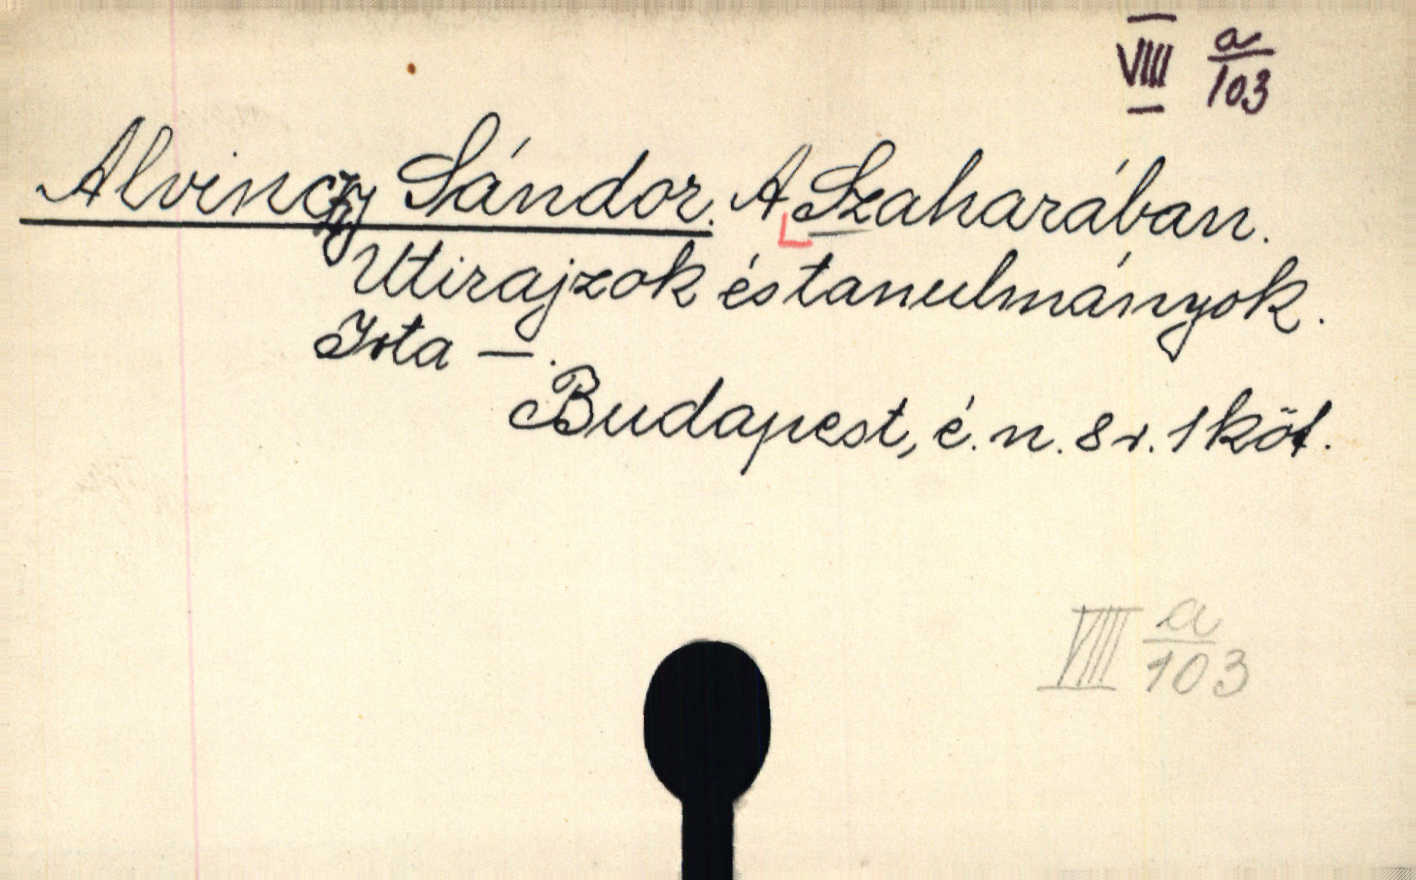 VIII a/103
Alvinczy Sándor. A Szaharában.
Utirajzok és tanulmányok.
Irta —.
Budapest, é. n. 8 r. 1 köt.
VIII a/103